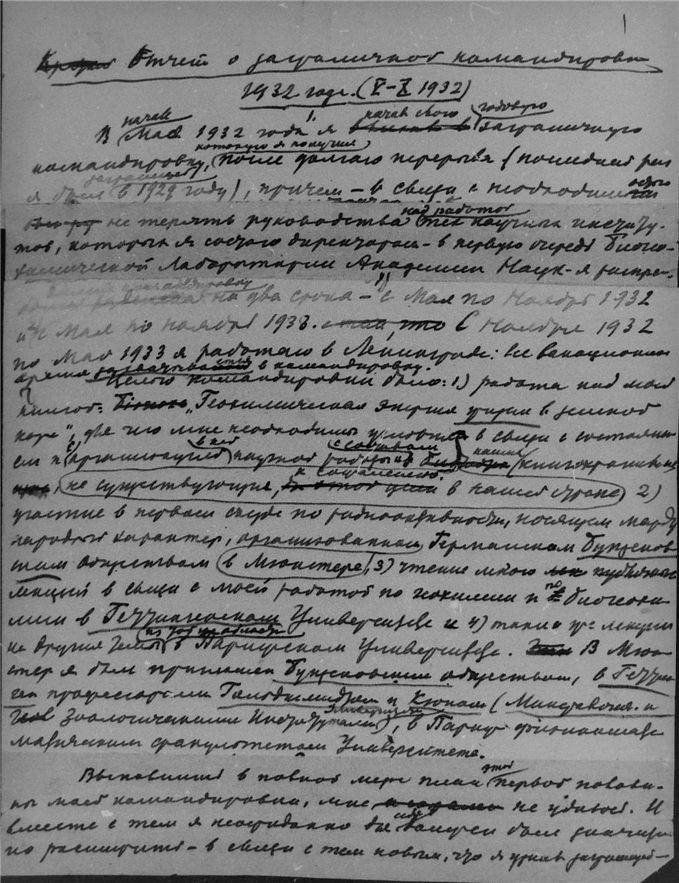 1
Отчет о заграничной командировке
1932 года. (V–X 1932)
начале начав свою годовую
В Мае 1932 года я заграничную
которую я получил
командировку, после долгого перерыва (последний раз
я был в 1929 году), причем – в связи с необходимостью
над работой
не терять руководства научных институ-
тов, которых я состою директором – в первую очередь Биогео-
химической Лаборатории Академии Наук – я распре-
командировку
на два срока – с Мая по Ноябрь 1932
и с Мая по Ноябрь 1933. С Ноября 1932
по Май 1933 я работаю в Ленинграде: все вакационное
время в командировку.
Целью командировки было: 1) работа над моей
книгой: „Геохимическая энергия жизни в земной
коре", для чего мне необходимы условия в связи с состояни-
ем организацией научной работы книгохранилищ
не существующие, в нашей стране 2)
участие в первом съезде по радиоактивности, носящем между-
народный характер, организованном Германским Бунзенов-
ским обществом в Мюнстере, 3) чтение мною публичных
лекций в связи с моей работой по геохимии и по биогеохи-
мии в Геттингенском Университете и 4) таких же лекций
на другие темы в Парижском Университете. В Мюн-
стер я был приглашен Бунзеновским обществом, в Геттин-
ген профессорами Гольдшмидтом и Кюном (Минералогич. и
Зоологическими Институтами), в Париж физико-мате-
матическим факультетом Университета.
этой
Выполнить в полной мере план первой полови-
ны моей командировки, мне не удалось. И
вместе с тем я неожиданно должен был значительно
его расширить – в связи с тем новым, что я узнал заграницей –